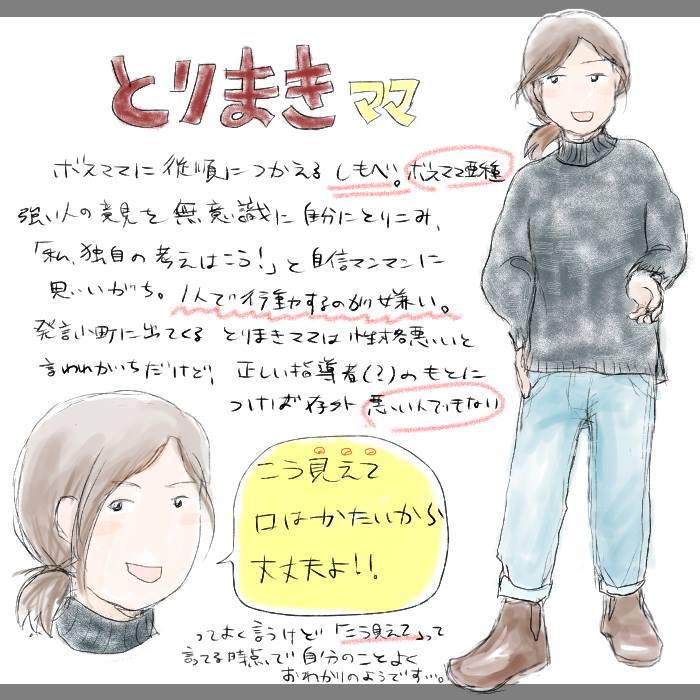 とりまきママ
ボスママに従順につかえるしもべ。ボスママ亜種
強い人の意見を無意識に自分にとりこみ、
「私、独自の考えはこう!」と自信マンマンに
思いがち。1人で行動するのが嫌い。
発言小町に出てくるとりまきママは性格悪いと
言われがちだけど、正しい指導者(?)のもとに
つけば存外悪い人でもない
こう見えて
口はかたいから
丈丈夫よ!!
ってよく言うけど「こう見えて」って
言ってる時点で自分のことよく
おわかりのようです…。